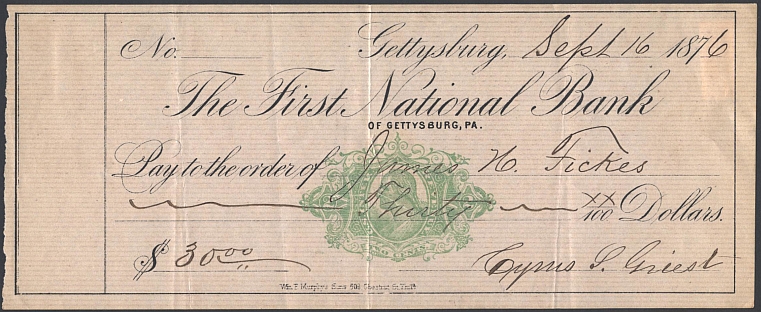 No. Gettysburg, Sept 16 1876
The First National Bank
OF GETTYSBURG, PA.
Pay to the order of James H. Fickes
Thirty xx/100 Dollars.
$ 30.00 Cyrus S. Griest
Wm. F. Murphy's Sons 509 Chestnut St. Phila